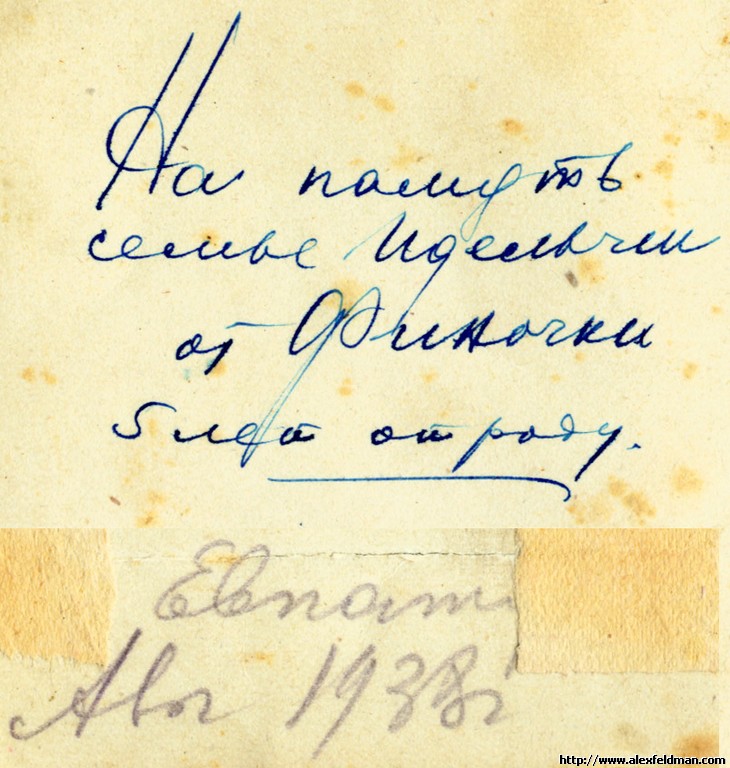 На память
семье Идельчик
от Финочки
5 лет от роду.
Евпат
Авг 1938г
http://www.alexfeldman.com